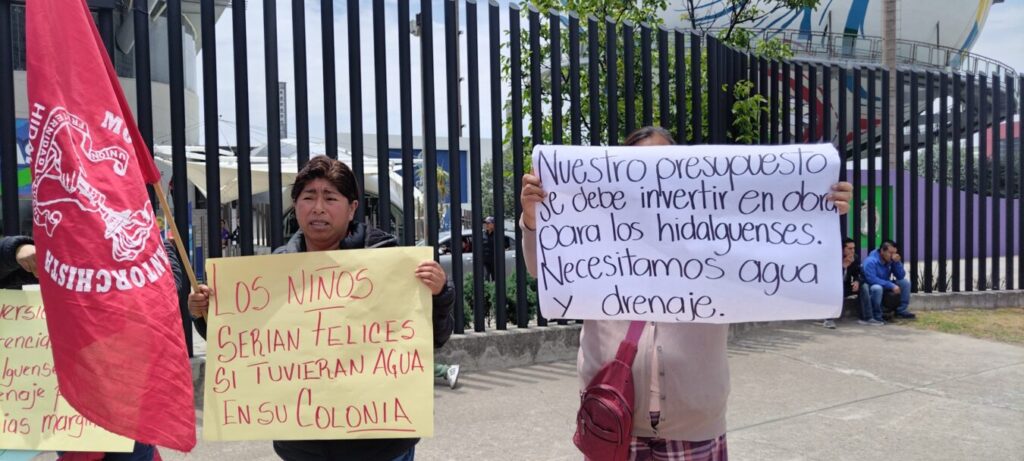 MO
HIDA
FRATERNIDAD
UNION
ANTORCHISTA
LOS NIÑOS
SERIAN FELICES
SI TUVIERAN AGUA
EN SU COLONIA
Nuestro presupuesto
se debe invertir en obra
para los hidalguenses.
Necesitamos agua
y drenaje.